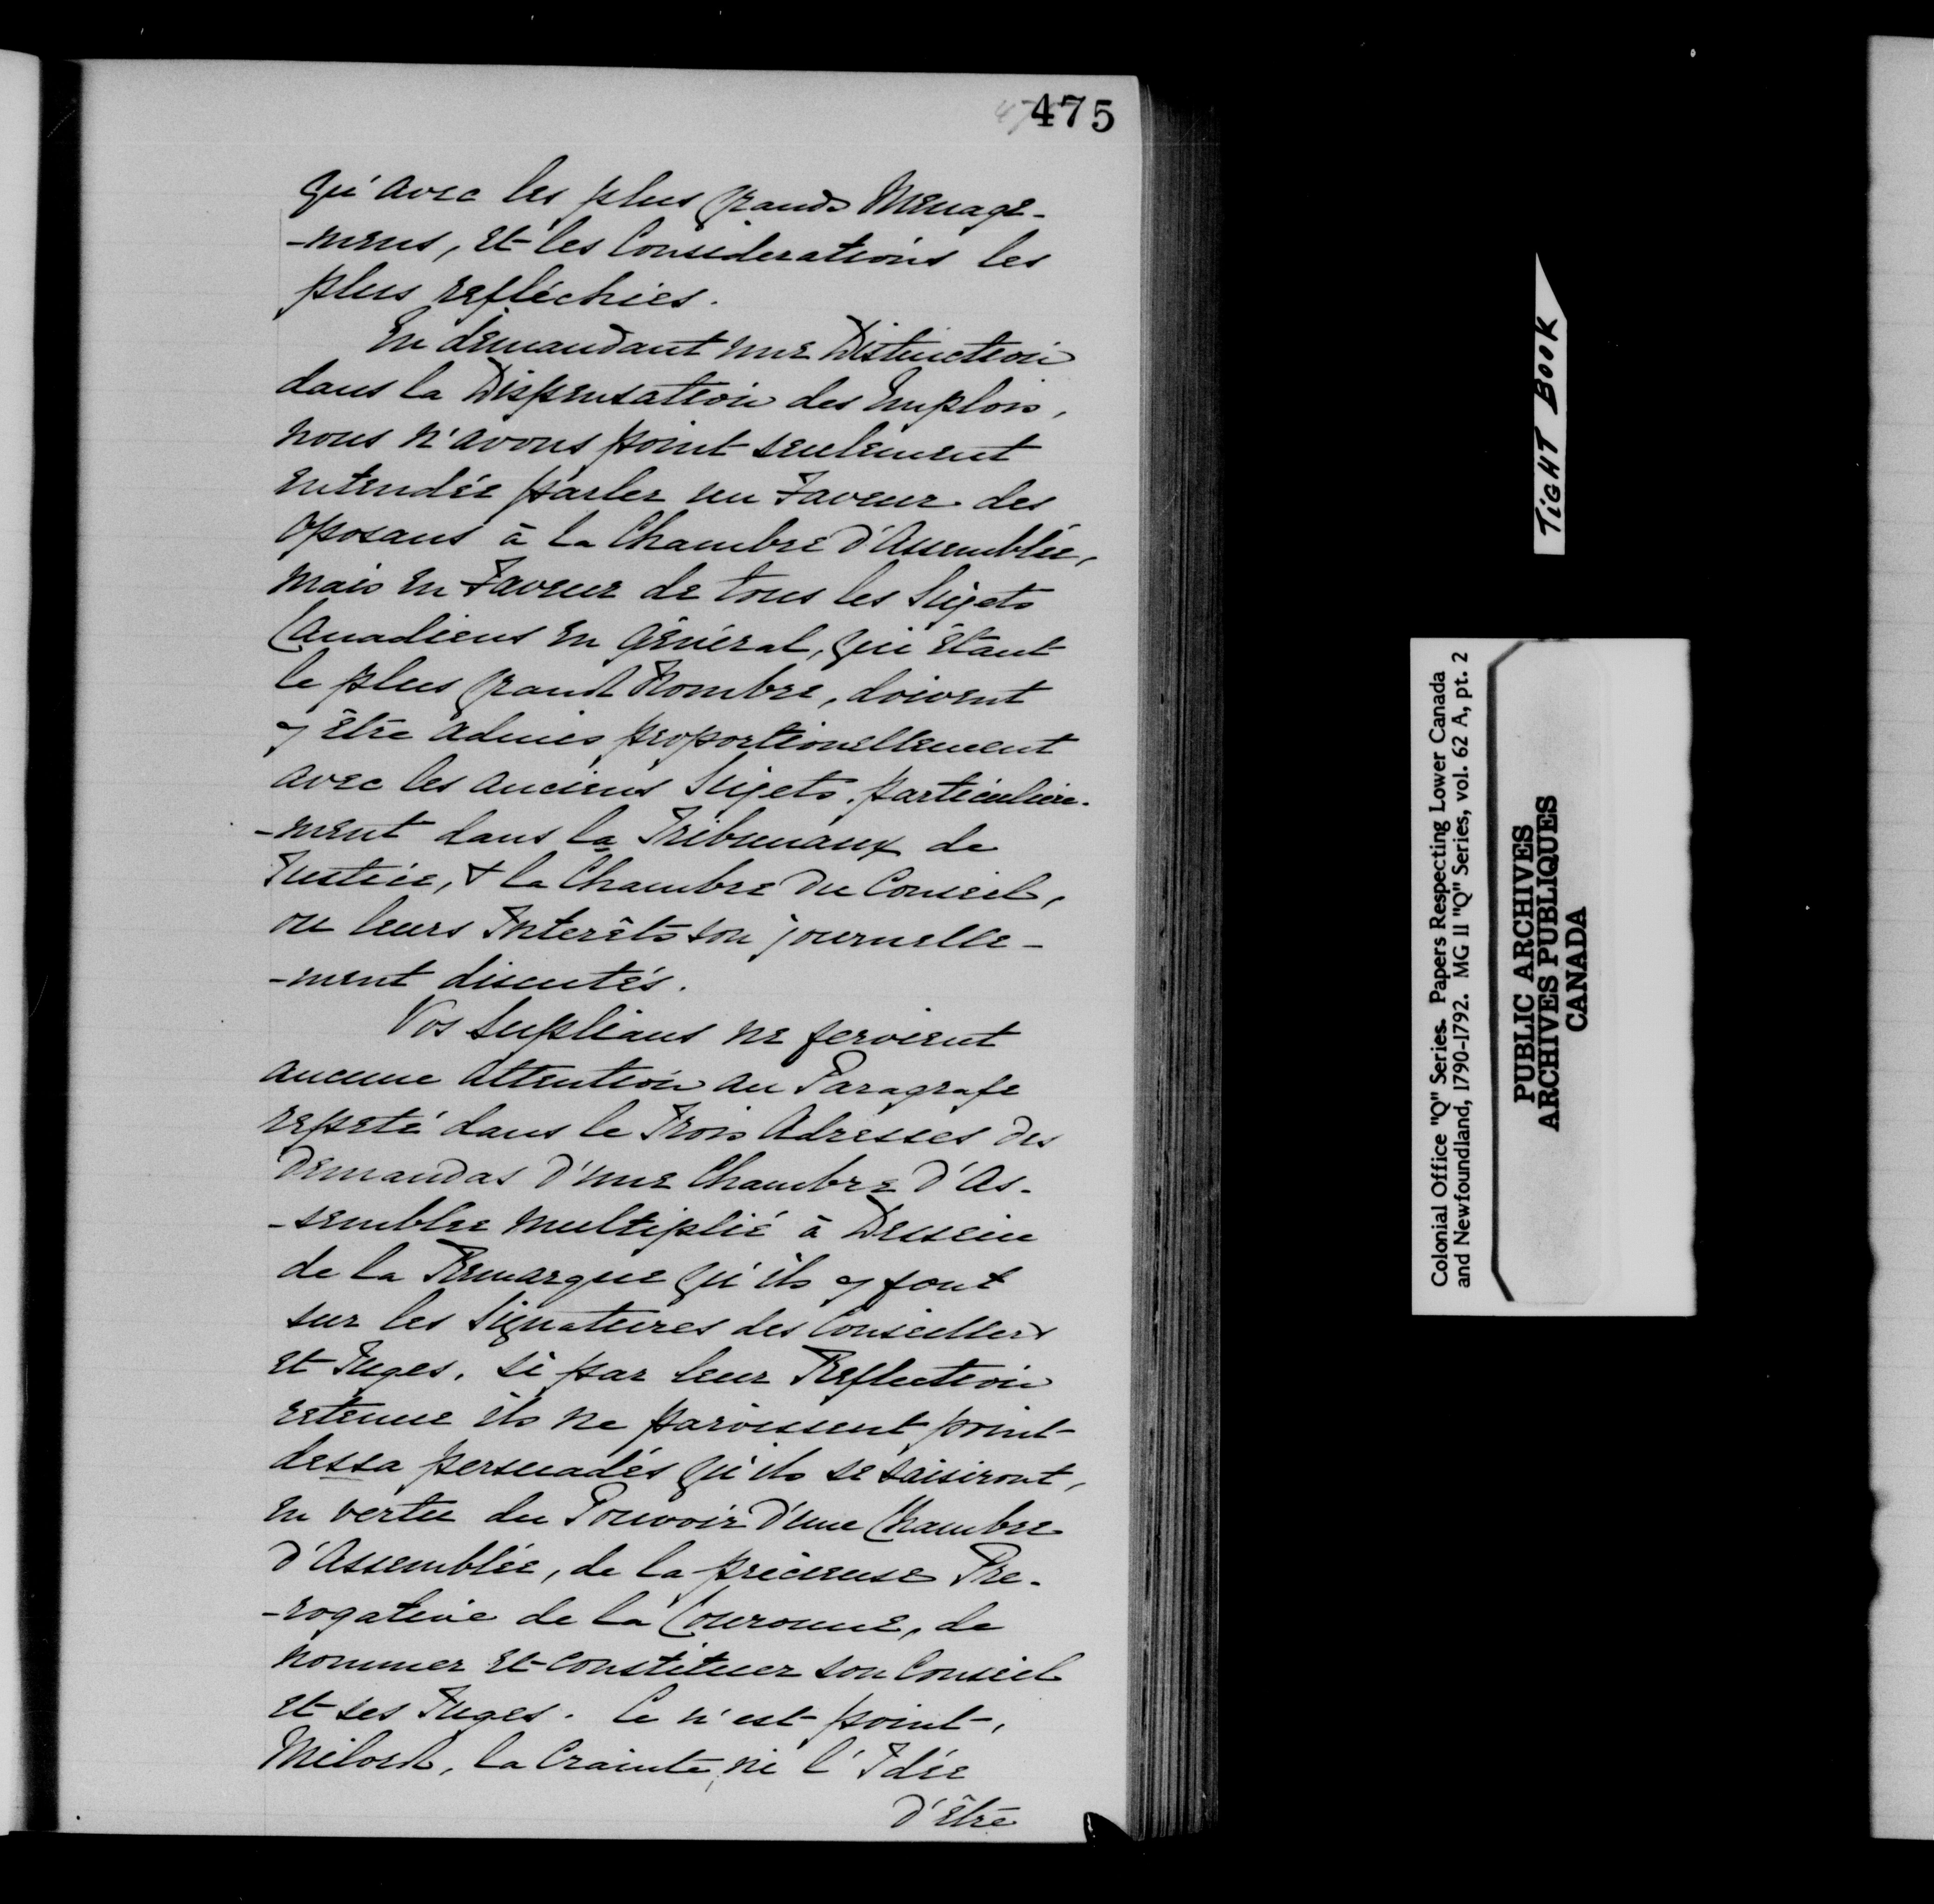 475
qu'avec les plus grands Menage-
-mens, et les Considerations les
plus refléchies.
En demandant une Distinction
dans la Dispensation des Emplois,
nous n'avons point seulement
entendée parler en Faveur des
Oposans à la Chambre d'Assemblée,
mais en Faveur de tous les Sujets
Canadiens en Général, qui étant
le plus grand Nombre, doivent
y être admis proportionellement
avec les anciens Sujets, particuliere-
-ment dans la Tribunaux de
Justice, & la Chambre du Conseil,
ou leurs Interêts son journelle-
-ment discutés.
Vos Suplians ne feroient
aucune attention au Paragrafe
repeté dans le Trois Adresses des
Demandas d'une Chambre d'As-
-semblee multiplié à Dessein
de la Remarque qu'ils y font
sur les Signatures des Conseillers
et Juges, si par leur Reflection
retenue ils ne paroissent point
dessa persuadés qu'ils se saisiront,
en vertu du Pouvoir d'une Chambre
d'Assemblée, de la précieuse Pre-
-rogative de la Couronne, de
nommer et constituer son Conseil
et ses Juges. Ce n'est point,
Milord, la Crainte, ni l'Idée
d'être
TIGHT BOOK
Colonial Office "Q" Series. Papers Respecting Lower Canada
and Newfoundland, 1790-1792. MG 11 "Q" Series, vol. 62 A, pt. 2
PUBLIC ARCHIVES
ARCHIVES PUBLIQUES
CANADA